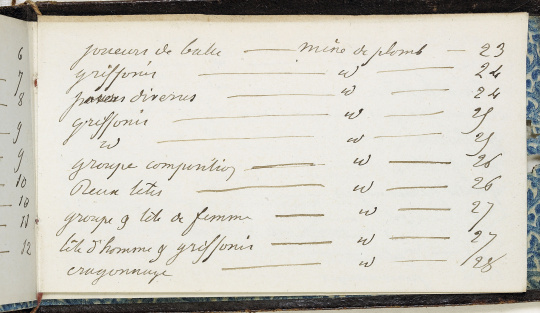 6
7
8
9
9
10
10
11
12
joueurs de balle — mine de plomb — 23
griffonis — id — 24
divenes — id — 24
griffonis — id — 25
id — id — 25
groupe composition — id — 26
Deux têtes — id — 26
groupe & tête de femme — id — 27
tête d'homme & griffonis — id — 27
crayonnage — id — 28